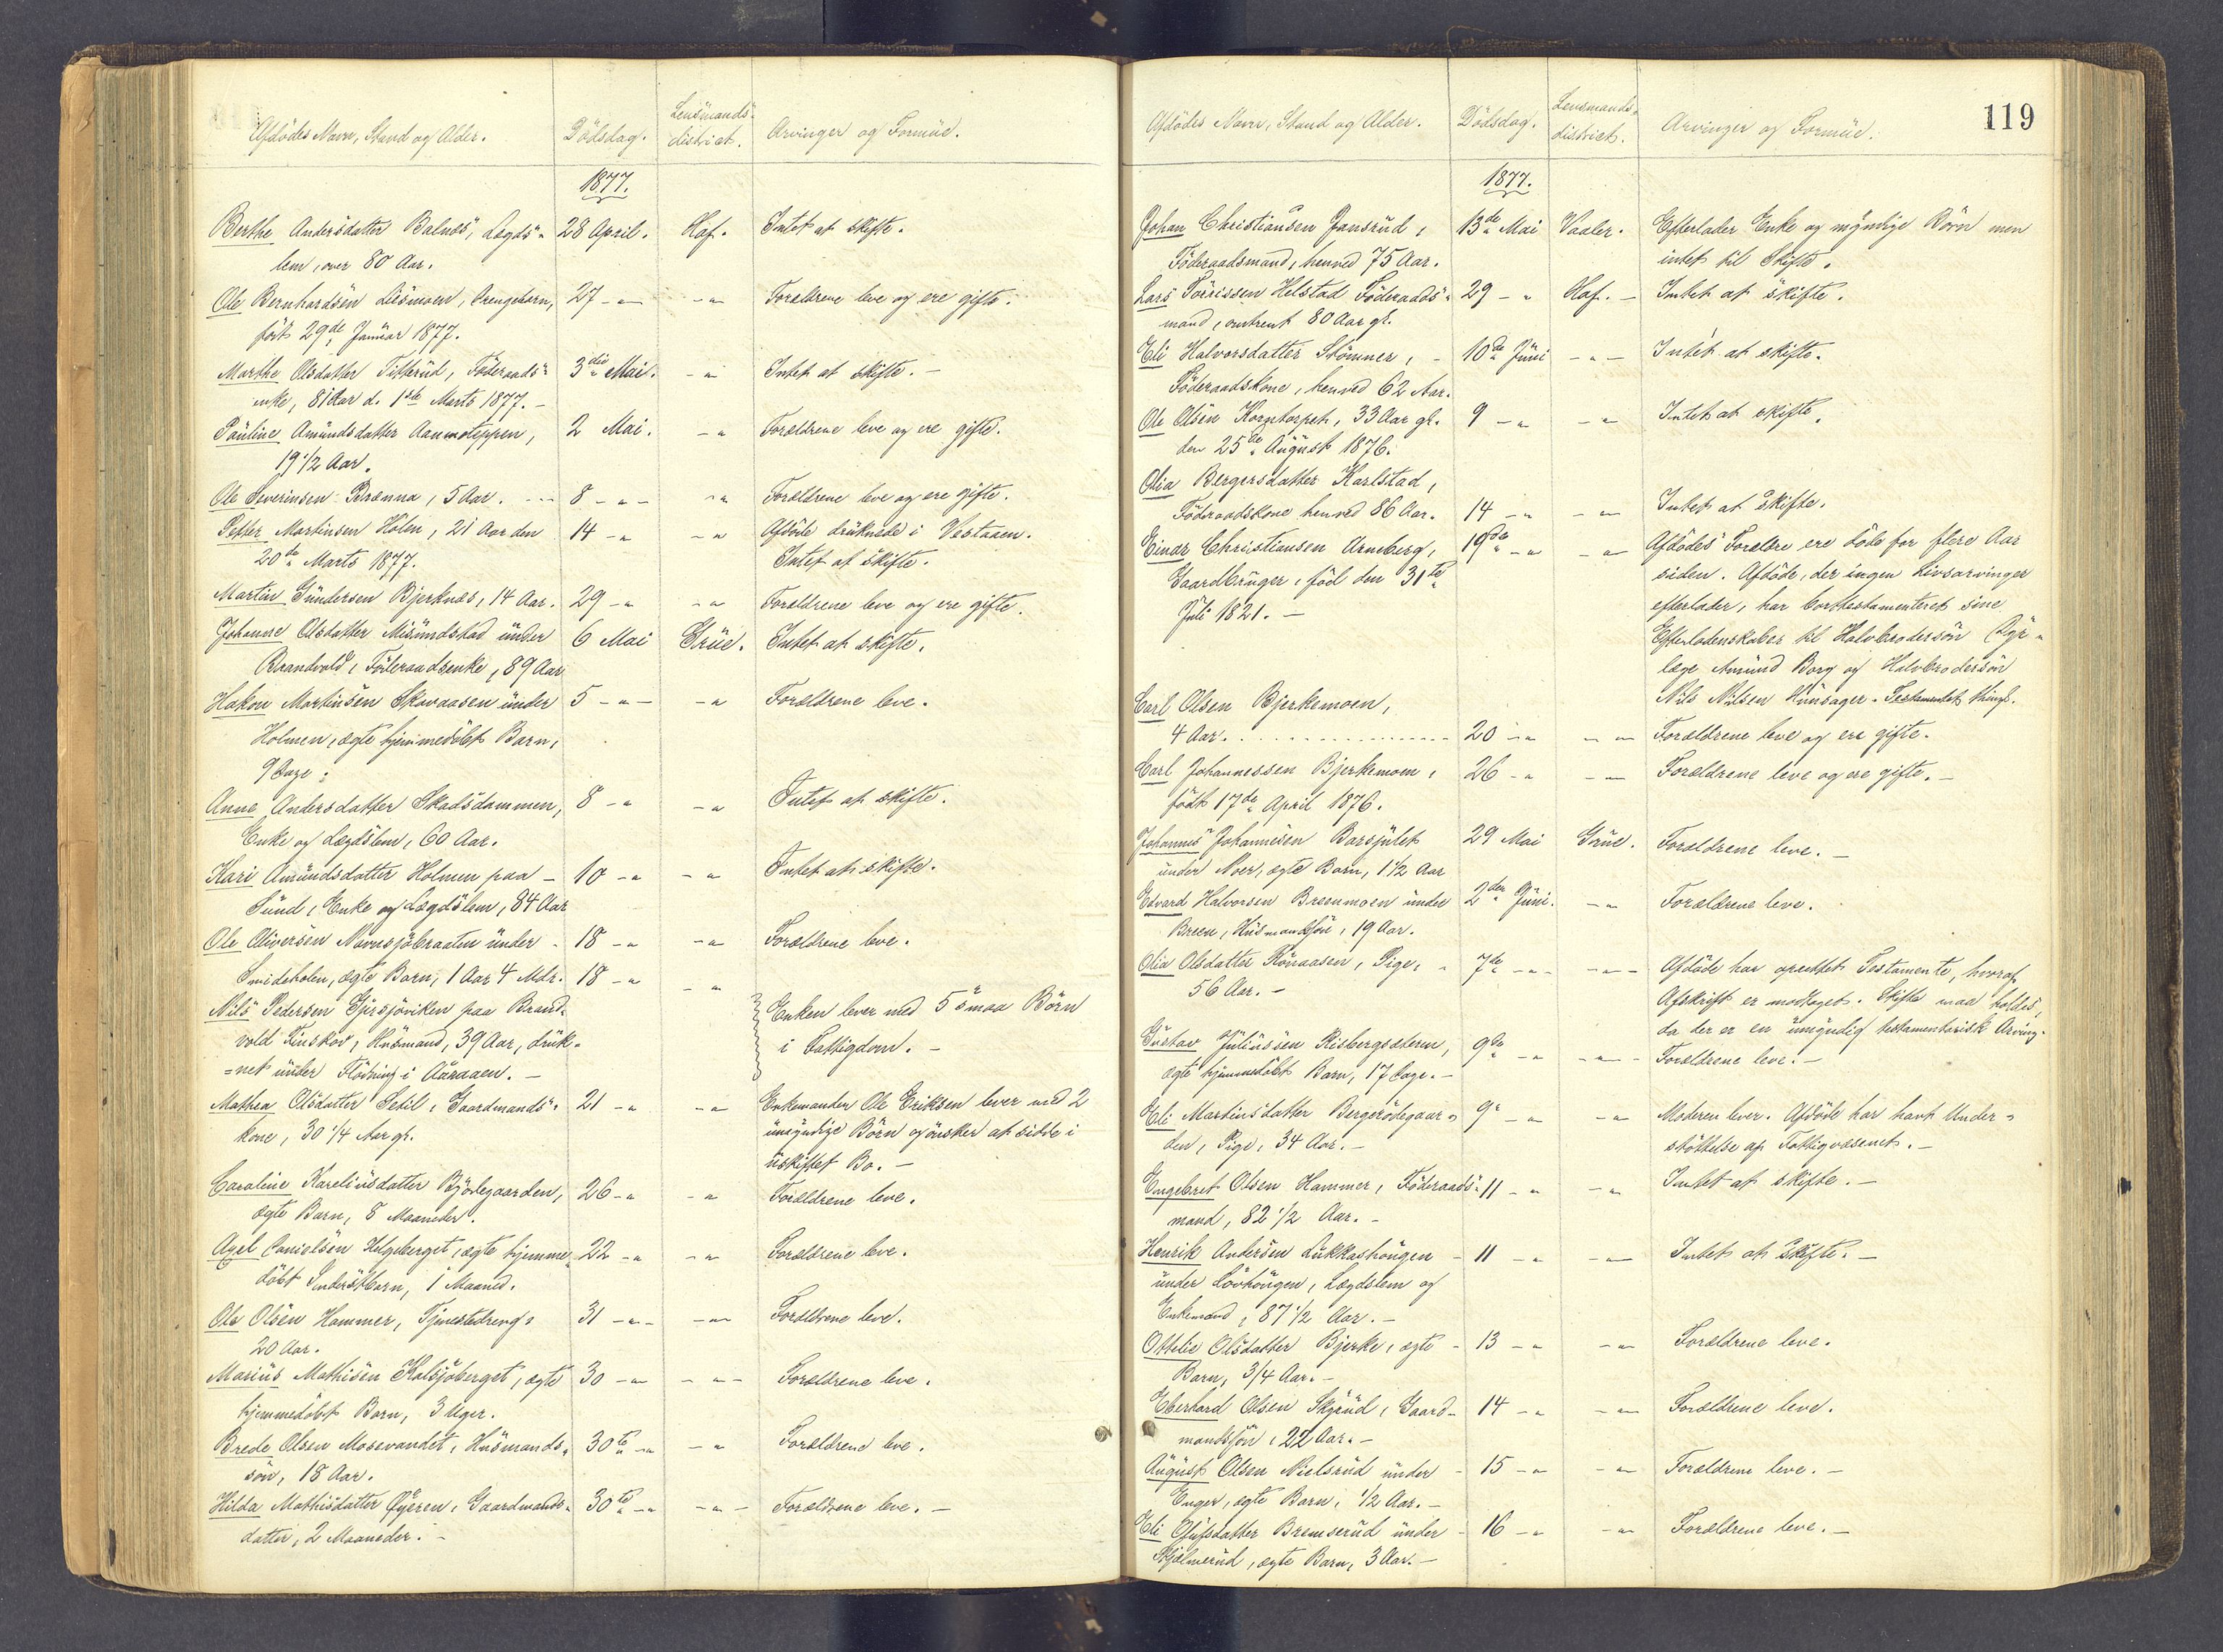 Afdödes Navn, Stand og Alder. Dödsdag. Lensmands-district. Arvinger og Formue.
1877.
Berthe Andersdatter Balnes, Lægds- 28 April. Hof. Intet at skifte.
lem, over 80 Aar.
Ole Bernhardsen Lismoen, Drengebarn, 27 - " - " Forældrene leve og ere gifte.
født 29de Januar 1877.
Marthe Olsdatter Titterud, Föderaads- 3die Mai. - " Intet at skifte. -
enke, 81 Aar d. 1ste Marts 1877. -
Pauline Amundsdatter Aamoteppen, 2 Mai. - " Forældrene leve og ere gifte.
19 1/2 Aar.
Ole Severinsen Brænna, 5 Aar. - - 8 - " - - " Forældrene leve og ere gifte.
Petter Martinsen Holen, 21 Aar den 14 - " - " Afdöde druknede i Vestaaen.
20de Marts 1877. Intet at skifte.
Martin Gundersen Bjerknæs, 14 Aar. 29 - " - " Forældrene leve og ere gifte.
Johanne Olsdatter Misundstad under 6 Mai Grue. Intet at skifte.
Brandvold, Föderaadsenke, 89 Aar
Hakon Martinsen Skavaasen under 5 - " - - " Forældrene leve.
Holmen, ægte hjemmedöbt Barn,
9 Dage.
Anne Andersdatter Skadsdammen, 8 - " - " Intet at skifte.
Enke og Lægdslem, 60 Aar.
Kari Amundsdatter Holmen paa - 10 - " - " Intet at skifte.
Sund, Enke og Lægdslem, 84 Aar
Ole Oliversen Navnsjöbraaten under - 18 - " - " Forældrene leve.
Smideholen, ægte Barn, 1 Aar 4 Mdr. 18 - " - "
Nils Pedersen Gjersjöviken paa Brand- Enken lever med 5 smaa Börn
vold Finskov, Husmand, 39 Aar, druk- i Fattigdom. -
=net under Flödning i Aaraaen. -
Mathea Olsdatter Setil, Gaardmands- 21 - " - " Enkemanden Ole Eriksen lever med 2
kone, 30 1/4 Aar gl. umyndige Börn og önsker at sidde i
uskiftet Bo. -
Caroline Kareliusdatter Björlegaarden, 26 - " - " Forældrene leve.
ægte Barn, 8 Maaneder.
Axel Danielsen Helgeberget, ægte hjemme- 22 - " - " Forældrene leve.
döbt Inderstbarn, 1 Maaned.
Ole Olsen Hammer, Tjenestedreng, 31 - " - - " Forældrene leve.
20 Aar.
Marius Mathisen Kalsjöberget, ægte 30 - " - " - Forældrene leve.
hjemmedöbt Barn, 3 Uger.
Brede Olsen Mosevandet, Husmands- 30te - " - " Forældrene leve.
sön, 18 Aar.
Hilda Mathisdatter Øyeren, Gaardmands- 30te - " - " - Forældrene leve. -
datter, 2 Maaneder. -
119
Afdödes Navn, Stand og Alder. Dödsdag. Lensmands-district. Arvinger og Formue.
1877.
Johan Christiansen Jansrud, 13de Mai Vaaler. Efterlader Enke og myndige Börn men
Föderaadsmand, henved 75 Aar. intet til Skifte.
Lars Törrissen Helstad Föderaads- 29 - " Hof. - Intet at skifte.
mand, omtrent 80 Aar gl.
Eli Halvorsdatter Stömner, - 10de Juni - " - Intet at skifte.
Föderaadskone, henved 62 Aar.
Ole Olsen Korntorpet, 33 Aar gl. 9 - " - " Intet at skifte.
den 25de August 1876.
Olia Bergersdatter Karlstad,
Föderaadskone henved 86 Aar. 14 - " - " Intet at skifte.
Einar Christiansen Arneberg, 19de - " - " Afdödes Forældre ere döde for flere Aar
Gaardbruger, född den 31te siden. Afdöde, der ingen Livsarvinger
Juli 1821. - efterlader, har borttestamenteret sine
Efterladenskaber til Halvbrodersön Dyr-
læge Amund Borg og Halvbrodersön
Nils Nilsen Hunsager. Testamentet thingl.
Carl Olsen Bjerkemoen,
4 Aar. . . . . . . . . . . 20 - " - " Forældrene leve og ere gifte.
Carl Johannessen Bjerkemoen, 26 - " - " Forældrene leve og ere gifte. -
födt 17de April 1876.
Johannes Johannesen Barsjulet 29 Mai Grue. Forældrene leve. -
under Noer, ægte Barn, 1 1/2 Aar
Edvard Halvorsen Breenmoen under 2den Juni. - " Forældrene leve.
Breen, Husmandsön, 19 Aar.
Olia Olsdatter Rönaasen, Pige, - 7de - " - - " - Afdöde har oprettet Testamente, hvoraf
56 Aar. - Afskrift er modtaget. Skifte maa holdes,
da der er en umyndig testamentarisk Arving.
Gustav Juliussen Risbergsæteren, 9de - " - " - Forældrene leve. -
ægte hjemmedöbt Barn, 17 Dage. -
Eli Martinsdatter Bergerödegaar- 9 - " - " Moderen lever. Afdöde har havt Under-
den, Pige, 34 Aar. - stöttelse af Fattigvæsenet. -
Engebret Olsen Hammer, Föderaads- 11 - " - " Intet at skifte. -
mand, 82 1/2 Aar. -
Henrik Andersen Lukkashougen - 11 - " - " Intet at skifte. -
under Lövhougen, Lægdslem og
Enkemand, 87 1/2 Aar. -
Othilie Olsdatter Bjerke, ægte - 13 - " - " Forældrene leve.
Barn, 3/4 Aar. -
Eberhard Olsen Skyrud, Gaard- 14 - " - " Forældrene leve.
mandssön, 22 Aar. -
August Olsen Nielsrud under - 15 - " - " Forældrene leve. -
Enger, ægte Barn, 1/2 Aar. -
Eli Olufsdatter Bremserud under - 16 - " - " Forældrene leve. -
Skjelmerud, ægte Barn, 3 Aar. -